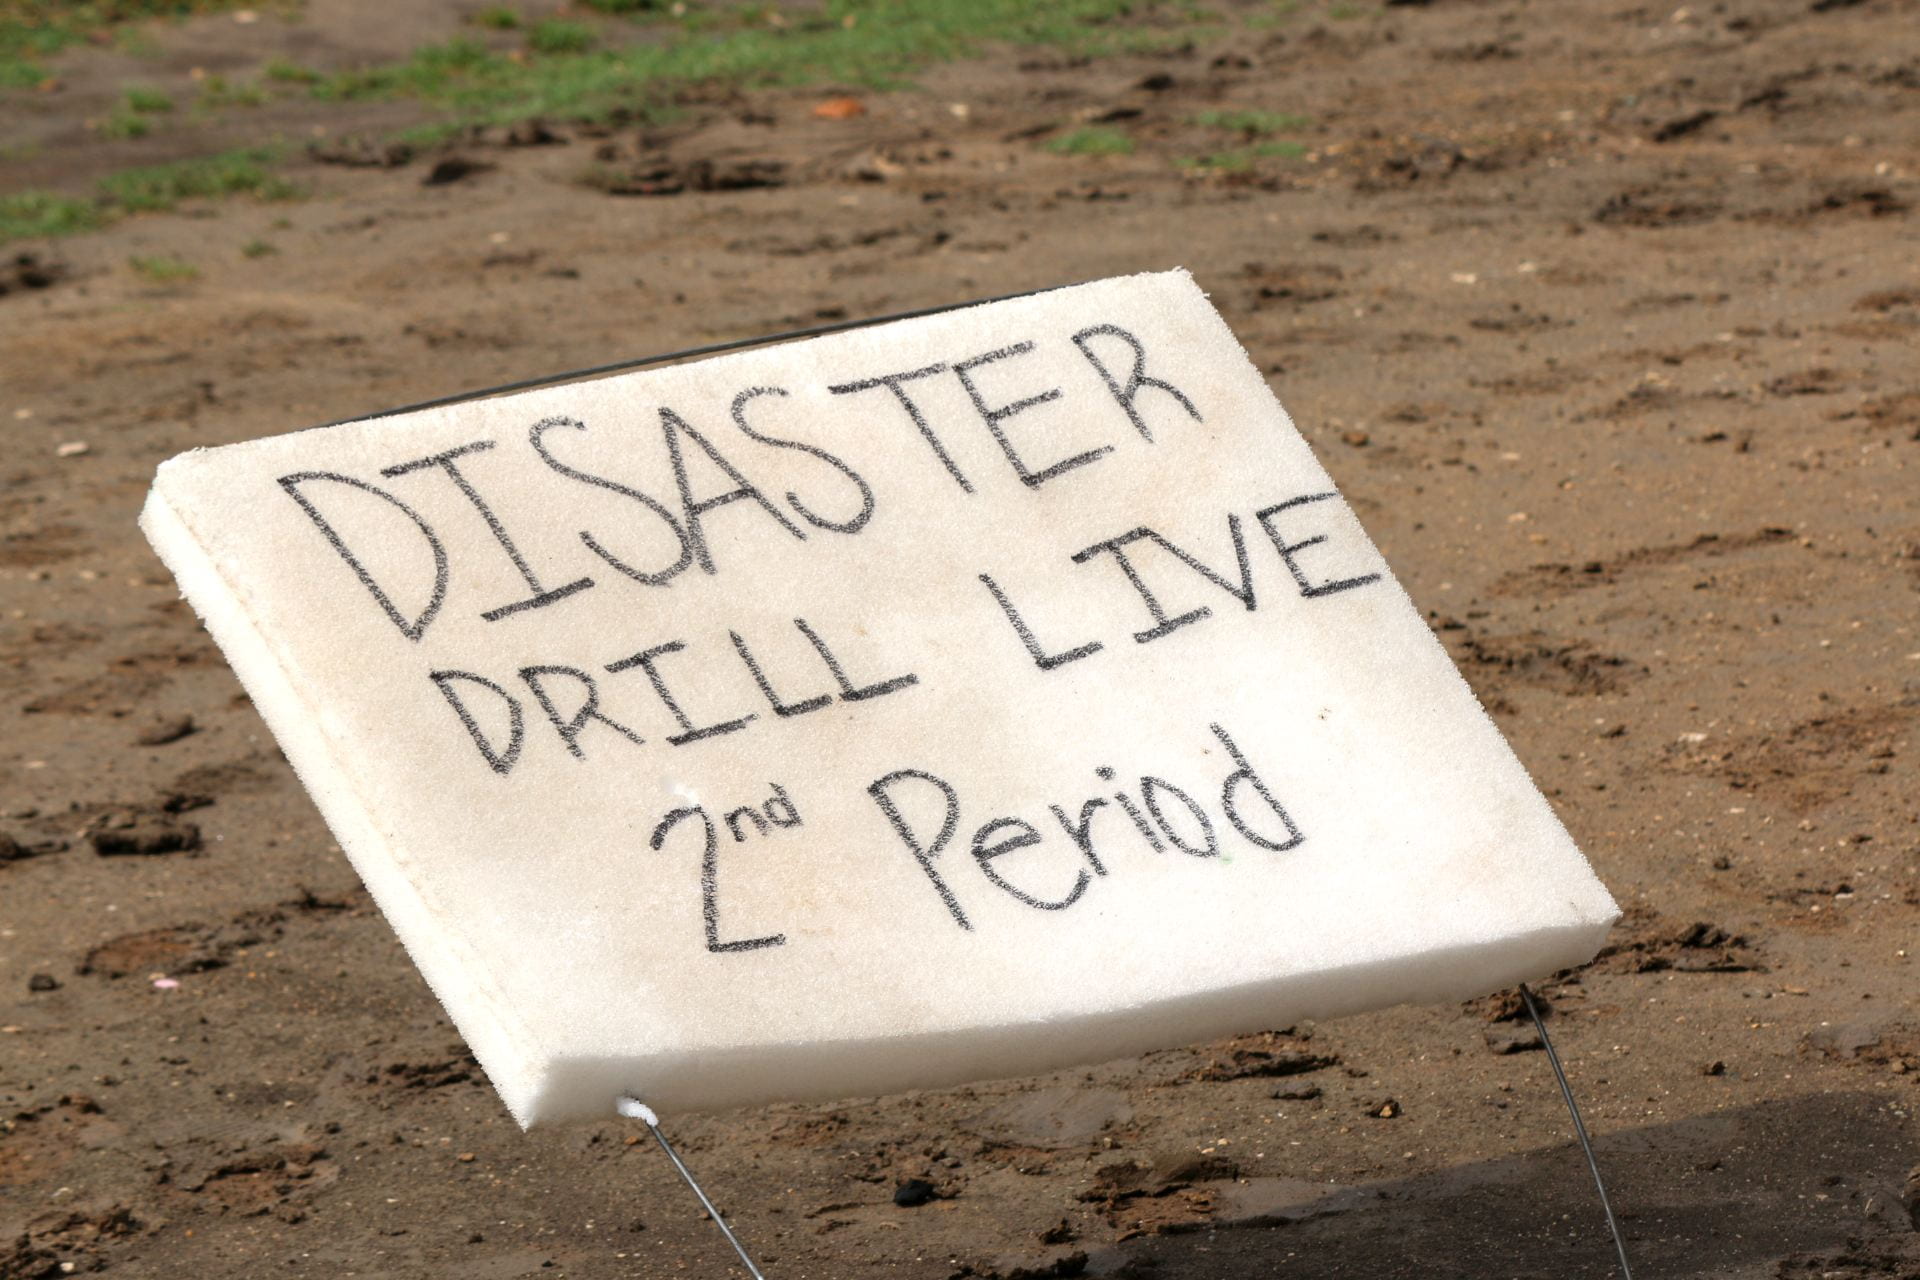 DISASTER
DRILL LIVE
2nd Period